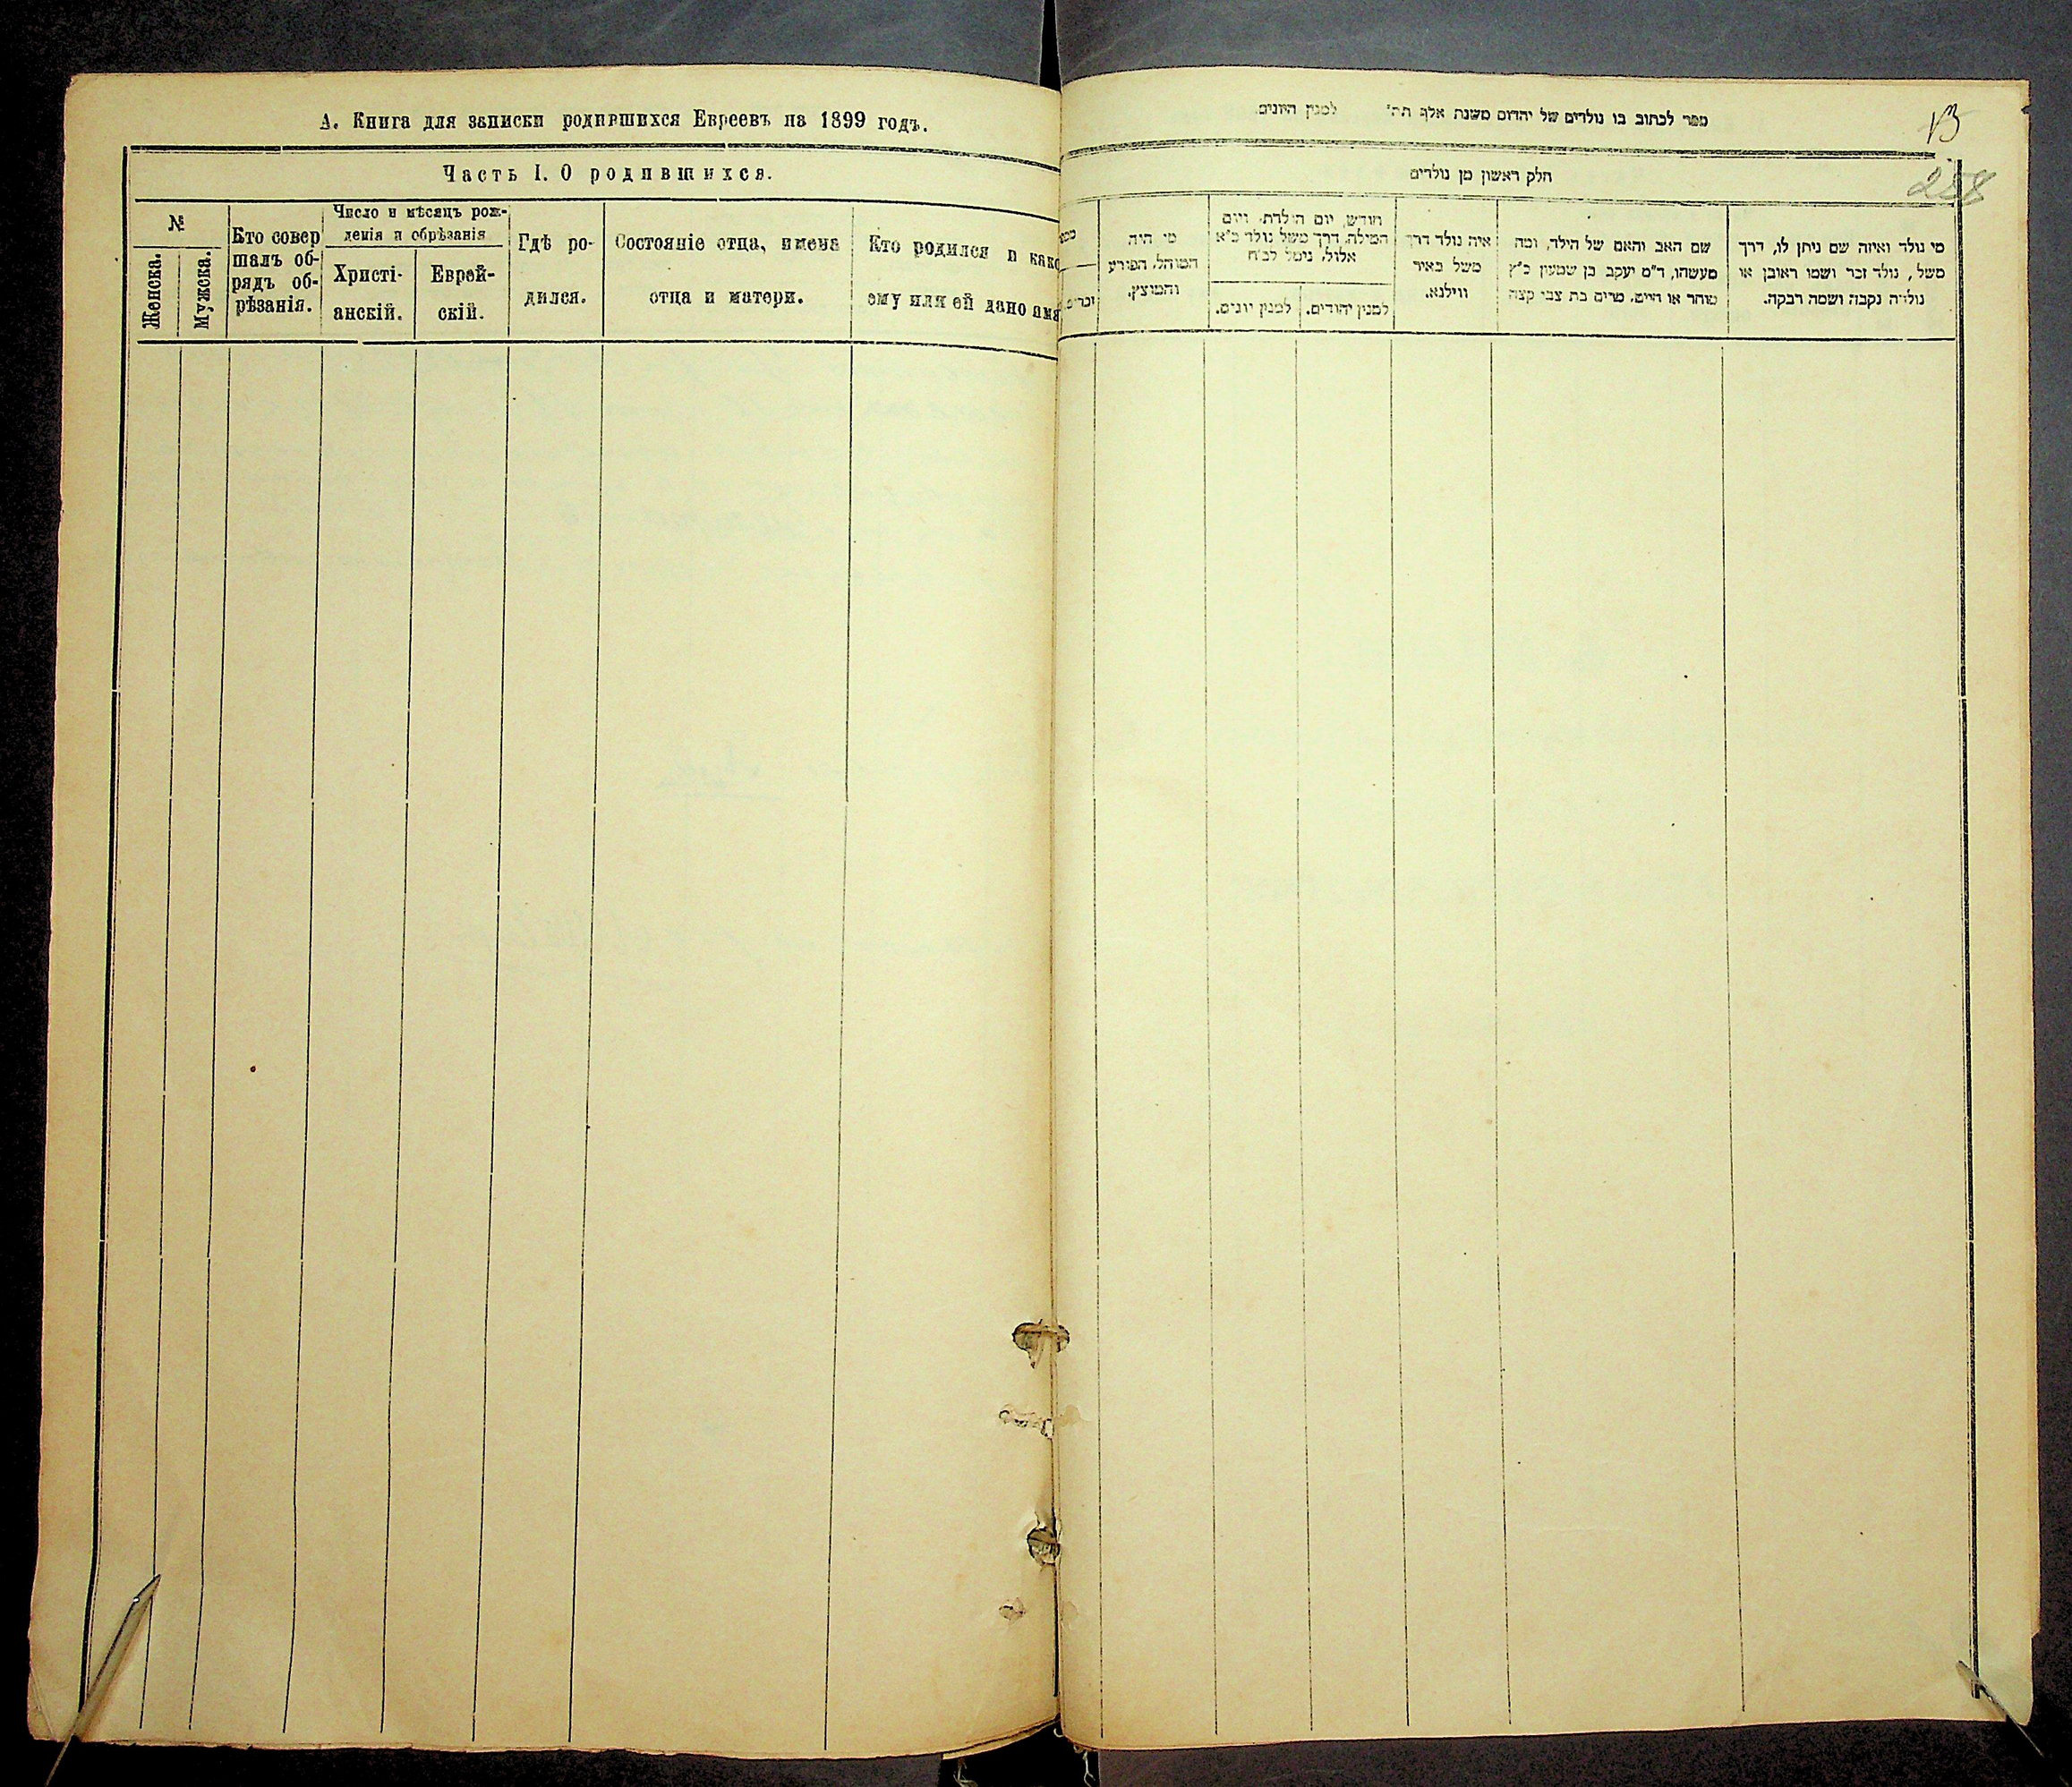 А. Книга для записки родившихся Евреевъ на 1899 годъ.
Часть I. О родившихся.
№
Женска.
Мужска.
Кто совер
шалъ об-
рядъ об-
рѣзанія.
Число и мѣсяцъ рож-
денія и обрѣзанія
Христі-
анскій.
Еврей-
скій.
Гдѣ ро-
дился.
Состояніе отца, имена
отца и матери.
Кто родился и како
ему или ей дано имя
ספר לכתוב בו נולדים של יהדום משנת אלף תת' למנין היונים.
13
258
חלק ראשון מן נולדים
מי היה
המוהל, הפורע
והמוצץ.
חודש, יום הולדת ויום
המילה, דרך משל נולד כ"א
אלול, נימל לכ"ח
למנין יהודים.
למנין יונים.
איה נולד דרך
משל באיר
ווילנא.
שם האב והאם של הילד, ומה
מעשהו, ד"מ יעקב בן שמעון כ"ץ
סוחר או חייט, מרים בת צבי קצה
מי נולד ואיזה שם ניתן לו, דרך
משל, נולד זכר ושמו ראובן או
נולדה נקבה ושמה רבקה.